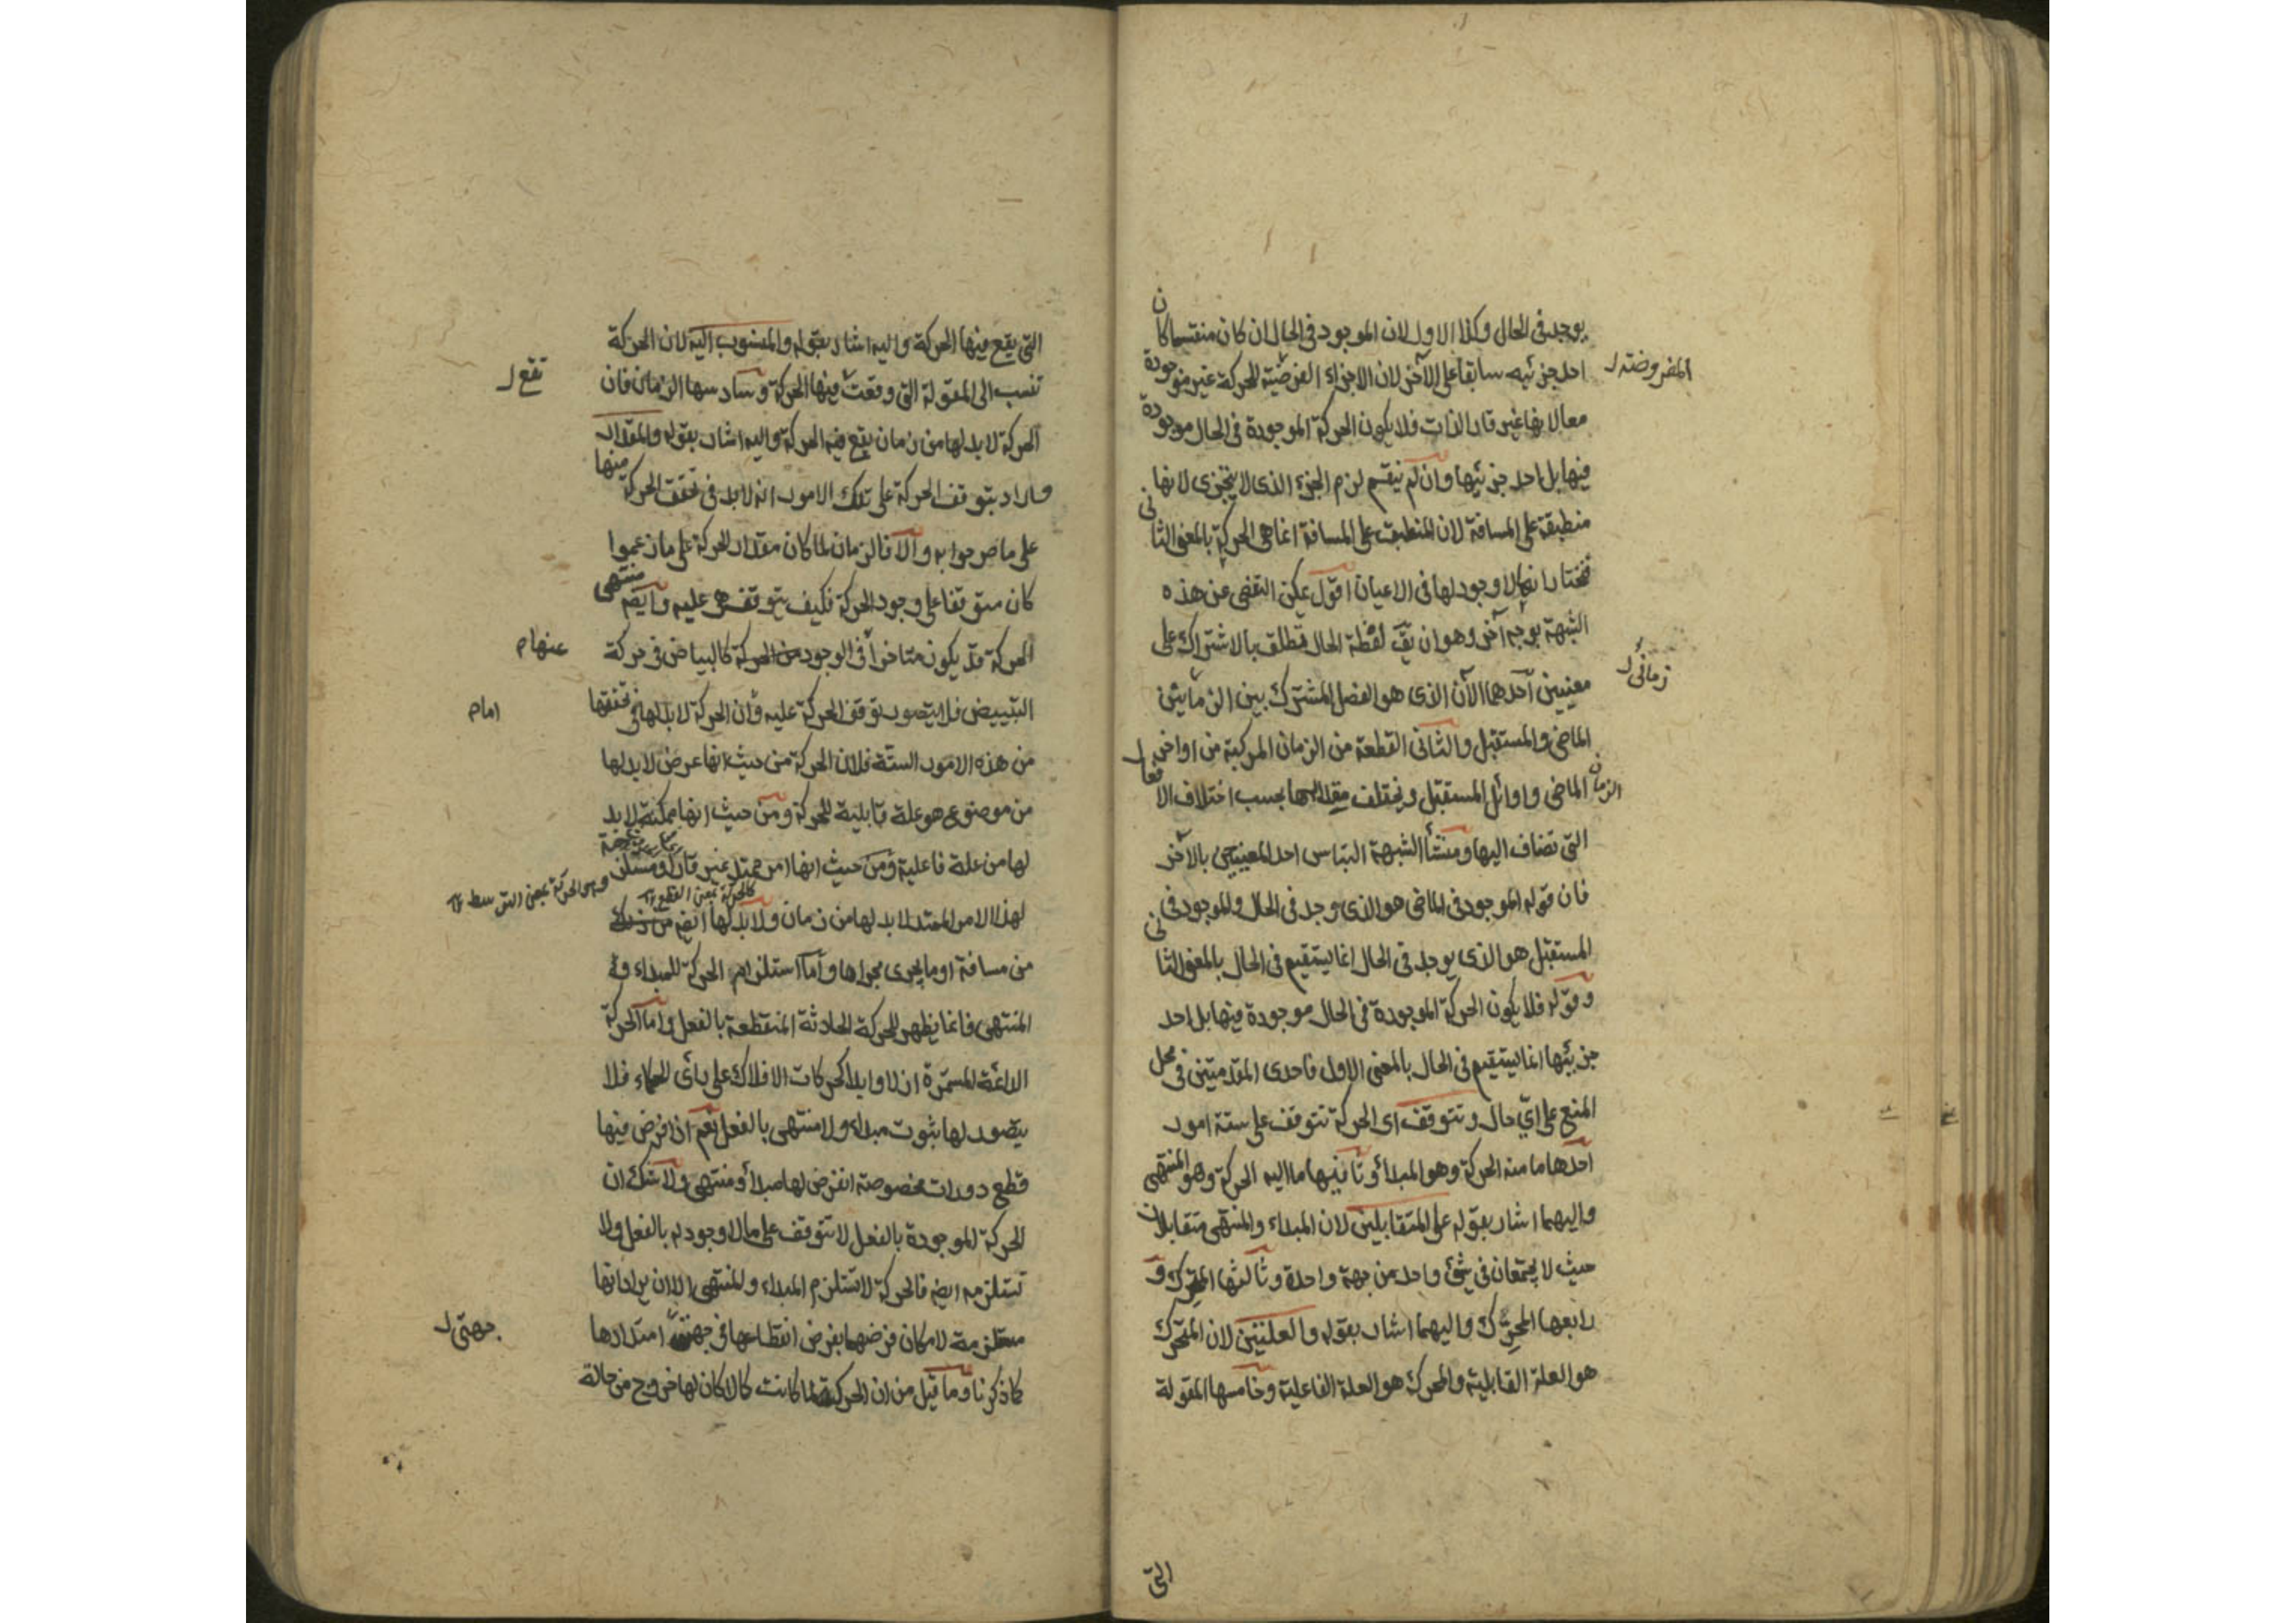 يوجد فى الحال وكذا الاول لان الموجود فى الحال ان كان منقسما كان
احد جزئيه سابقا على الآخر لان الاجزاء الفرضية للحركة غير موجودة
المفروضة ل
معا لانها غير قار الذات فلا يكون الحركة الموجودة فى الحال موجودة
فيها بل احد جزئيها وان لم ينقسم لزم الجزء الذى لا يتجزى لانها
منطبقة على المسافة لان المنطبق على المسافة انما هى الحركة بالمعنى الثانى
فنختار انها لا وجود لها فى الاعيان اقول يمكن التفصى عن هذه
الشبهة بوجه آخر وهو ان يق لفظة الحال تطلق بالاشتراك على
معنيين احدهما الآن الذى هو الفصل المشترك بين الزمانين
زمانى ل
الماضى والمستقبل والثانى القطعة من الزمان المركبة من اواخر
الزمان الماضى واوائل المستقبل ويختلف مقدارها بحسب اختلاف الافعال
التى تضاف اليها ومنشأ الشبهة التباس احد المعنيين بالآخر
فان قوله الموجود فى الماضى هو الذى وجد فى الحال والموجود فى
المستقبل هو الذى يوجد فى الحال انما يستقيم فى الحال بالمعنى الثانى
وقوله فلا يكون الحركة الموجودة فى الحال موجودة فيها بل احد
جزئيها انما يستقيم فى الحال بالمعنى الاول فاحدى المقدمتين فى محل
المنع على اى حال وتتوقف اى الحركة تتوقف على ستة امور
احدها ما منه الحركة وهو المبدأ وثانيها ما اليه الحركة وهو المنتهى
واليهما اشار بقوله على المتقابلين لان المبداء والمنتهى متقابلان
حيث لا يجتمعان فى شئ واحد من جهة واحدة وثالثها المتحرك و
رابعها المحرِّك واليهما اشار بقوله والعلتين لان المتحرك
هو العلة القابلية والمحرك هو العلة الفاعلية وخامسها المقولة
التى
التى يقع فيها الحركة واليه اشار بقوله والمنسوب اليه لان الحركة
تقع ل
تنسب الى المقولة التى وقعت فيها الحركة وسادسها الزمان فان
الحركة لا بد لها من زمان يقع فيه الحركة واليه اشار بقوله والمقدار
واراد بتوقف الحركة على تلك الامور انه لا بد فى تحقق الحركة منها
على ما صرحوا به والا فالزمان لما كان مقدار الحركة على ما زعموا
كان متوقفا على وجود الحركة فكيف يتوقف هى عليه وايضم منتهى
الحركة قد يكون متاخرا فى الوجود من الحركة كالبياض فى حركة
عنها م
التبييض فلا يتصور توقف الحركة عليه وان الحركة لا بد لها فى تحققها
اما م
من هذه الامور الستة فلان الحركة من حيث انها عرض لا بد لها
من موضوع هو علة قابلية للحركة ومن حيث انها ممكنة لا بد
لها من علة فاعلية ومن حيث انها امر ممتد غير قار او مستلزمة
وهى الحركة بمعنى التوسط
كالحركة بمعنى القطع
لهذا الامر الممتد لا بد لها من زمان ولا بد لها ايضم
من مسافة او ما يجرى مجراها واما استلزام الحركة للمبداء و
المنتهى فانما يظهر للحركة الحادثة المنقطعة بالفعل واما الحركة
الدائمة المستمرة ازلا وابدا كحركات الافلاك على رأى الحكماء فلا
يتصور لها ثبوت مبداء ولا منتهى بالفعل نعم اذا فرض فيها
قطع دورات مخصوصة انفرض لها مبدأ ومنتهى ولا شك ان
الحركة الموجودة بالفعل لا تتوقف على ما لا وجود له بالفعل ولا
تستلزمه ايضم فالحركة لا تستلزم المبداء والمنتهى الا ان يراد انها
مستلزمة لامكان فرضهما بفرض انقطاعها فى جهتى امتدادها
جهتى ل
كما ذكرنا وما قيل من ان الحركة لما كانت كمالا كان لها خروج من حالة